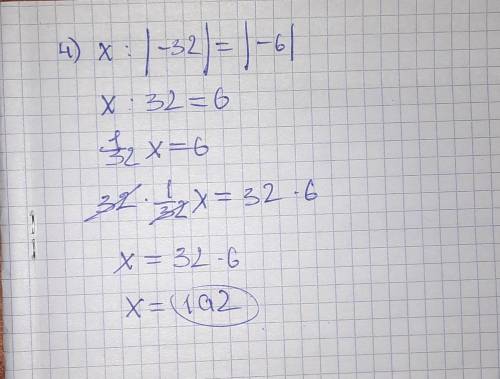 4) x : |-32| = |-6|
x : 32 = 6
1/32 x = 6
32 · 1/32 x = 32 · 6
x = 32 · 6
x = 192